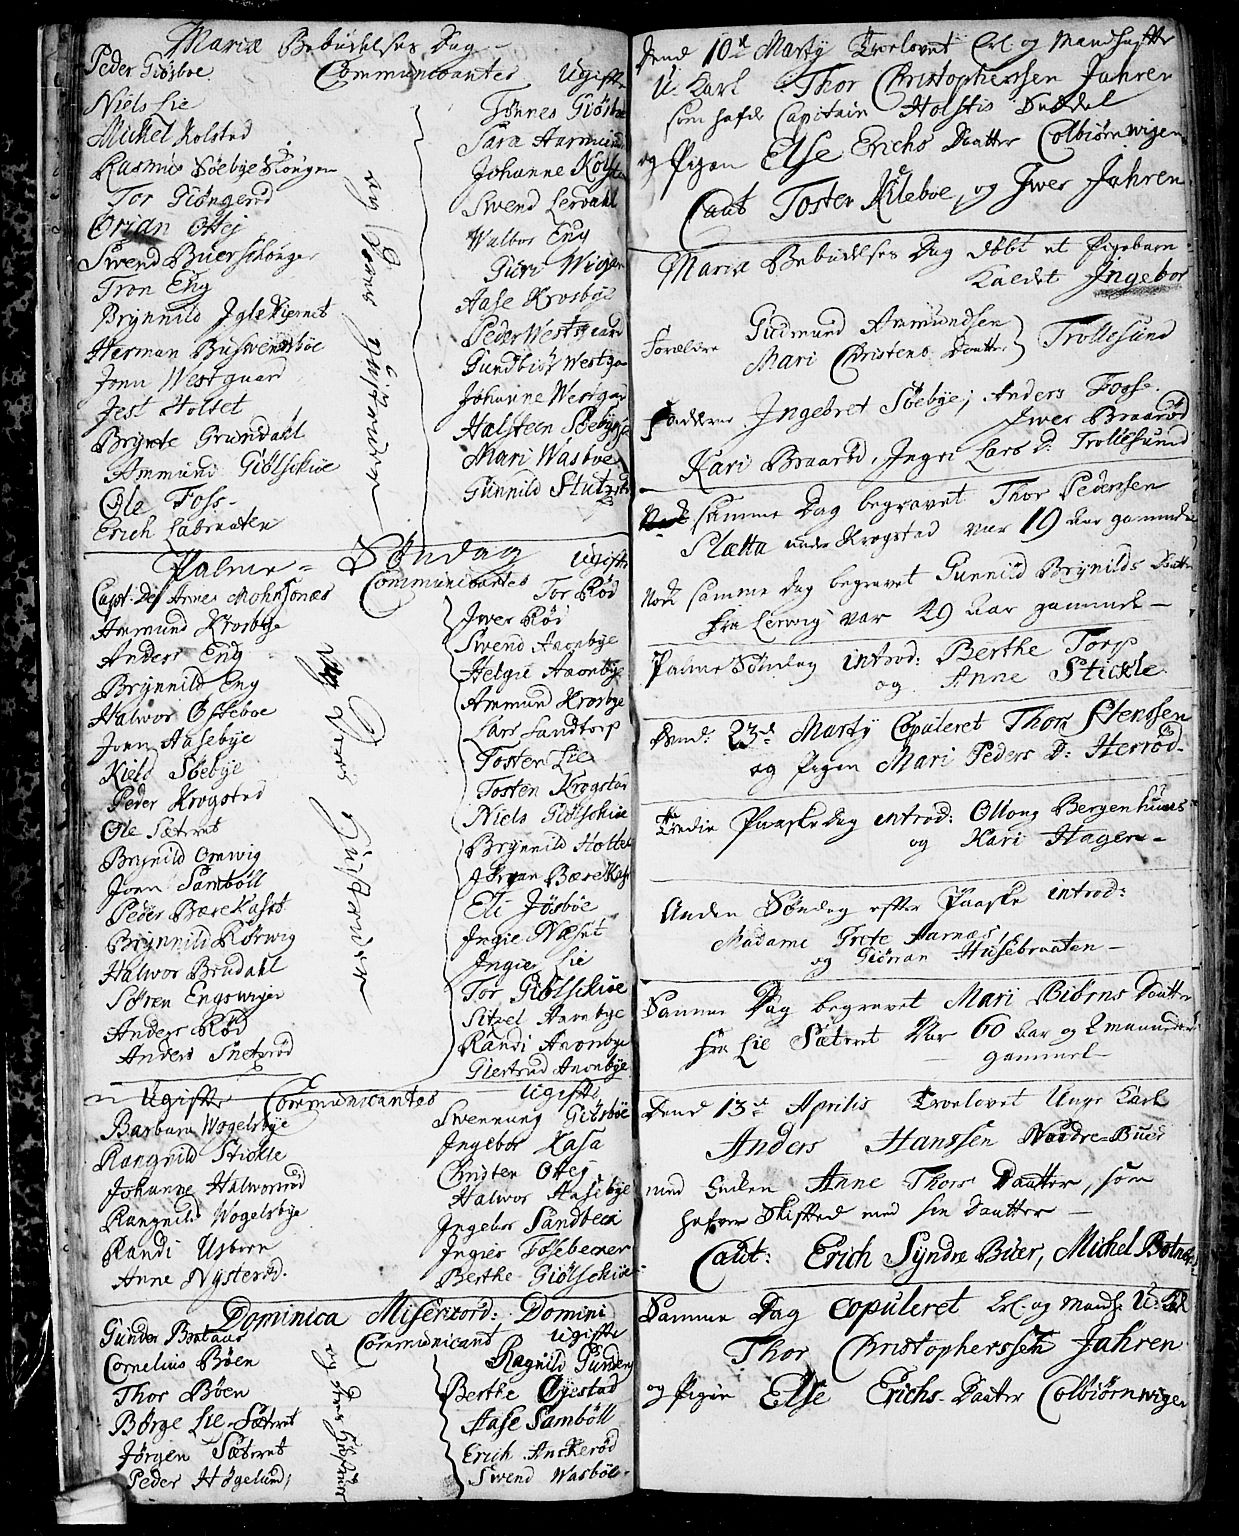 Mariæ Bebudelses Dag
Communicanter Ugifte
Peder Giøsboe
Niels Lie
Michel Kolstad
Rasmus Søebye Stongen
Tor Giøngerød
Ørian Ottej
Svend Buer Skonger
Tron Eng
Brynnild Iglekiernet
Herman Buswensbøe
Jonn Westgaard
Jest Holtet
Brynte Grundahl
Ammund Giølschiøe
Ole Foss
Erich Labraaten
og deres Hustruer
Tønnes Giøsboe
Sara Aarmund
Johanne Kolsta
Swend Lerdahl
Walbor Eng
Guri Wigen
Aase Krosbye
Peder Westgaard
Gundbiør Westga
Johanne Westgar
Halsteen Søebye
Mari Wasboe
Gunnild Stut
Palme Søndag
Communicantes Ugifte
Capt. Des Arnes Mohnsonæs
Ammund Krosbye
Anders Eng
Brynnild Eng
Halwor Østeboe
Jonn Aasebye
Niels Søebye
Peder Krogstad
Ole Sæteret
Brynild Omwig
Jonn Sambøll
Peder Bærekaset
Brynnild Kørwig
Halwor Brudahl
Søren Engswigen
Anders Rød
Anders Snetterød
og deres Hustruer
Tor Rød
Iwer Rød
Swend Aaonbye
Helgie Aaonbye
Ammun Krosbye
Lars Sandtorp
Tosten Lie
Tosten Krogstad
Niels Giølschiøe
Brynnild Holtet
Jørgan Bærekas
Eli Jøsbøe
Ingie Næset
Ingie Lie
Tor Giølschiøe
Sitzel Aaonbye
Randi Aaonbye
Giertrud Aaonbye
Ugifte Communicantes Ugifte
Barbara Wogelsbye
Rangnild Stickle
Johanne Halworsrud
Rangnild Wogelsbye
Randi Usborn
Anne Nysterød
Swennung Giøsbøe
Ingebor Kasa
Chisten Ottej
Halwor Aasebye
Ingebor Sandbeck
Ingier Fossebemer
Berthe Giølschiøe
Dominica Misericord: Domini
Communicant Ugifte
Gunder Brataas
Cornelius Bøen
Thor Bøen
Børge Lie-Sæteret
Jørgen Sæteret
Peder Høgelund
og deres Hustruer
Ragnild Gunder
Berthe Øyestad
Aase Sambøll
Erich Anckerød
Swend Wasbøe
Dend 10de Martÿ Trolovet Erl. og Mandhafte
U: Karl Thor Christopherssen Jahren
som hafde Capitain Holstis Seddel
og Pigen Else Erichs Daatter Colbiørnwigen
Caut Tosten Kileboe, og Iwer Jahren
Mariæ Bebudelses Dag døbt et Pigebarn
kaldet Ingebor
Forældre Gudmund Ammundsen
Mari Christens Daatter } Trollesund
Faddere Ingebret Søebye, Anders Fosse
Iwer Braarød
Kari Braarød, Ingri Lars D: Trollesund
samme Dag begravet Thor Pedersen
Slætta under Krogstad var 19 Aar gammel
Nock samme Dag begravet Gunnild Brynilds Daatter
fra Lerwig var 49 Aar gammel
Palme Søndag introd: Berthe Torp
og Anne Stickle
Dend: 23d Martÿ Copuleret Thor Stenssen
og Pigen Mari Peders D: Herrød
Tredie Paaskedag introd: Ollong Bergenhuus
og Kari Hagen
Anden Søndag efter Paaske introd:
Madame Grete Aarnæs
og Giøran Husebraaten
Samme Dag begravet Mari Biørns Daatter
fra Lie Sæteret var 60 Aar og 2 maaneder
gammel
Dend 13de Aprilis Trolovet Unge Karl
Anders Hanssen Nordre-Buer
med Enken Anne Thors Daatter, som
hafver Skifted med sin Daatter
Caut: Erich Syndre Buer, Michel Botne
Samme Dag copuleret Erl. og Mandh: U: Karl
Thor Christopherssen Jahren
og Pigen Else Erichs Daatter Colbiørnwigen